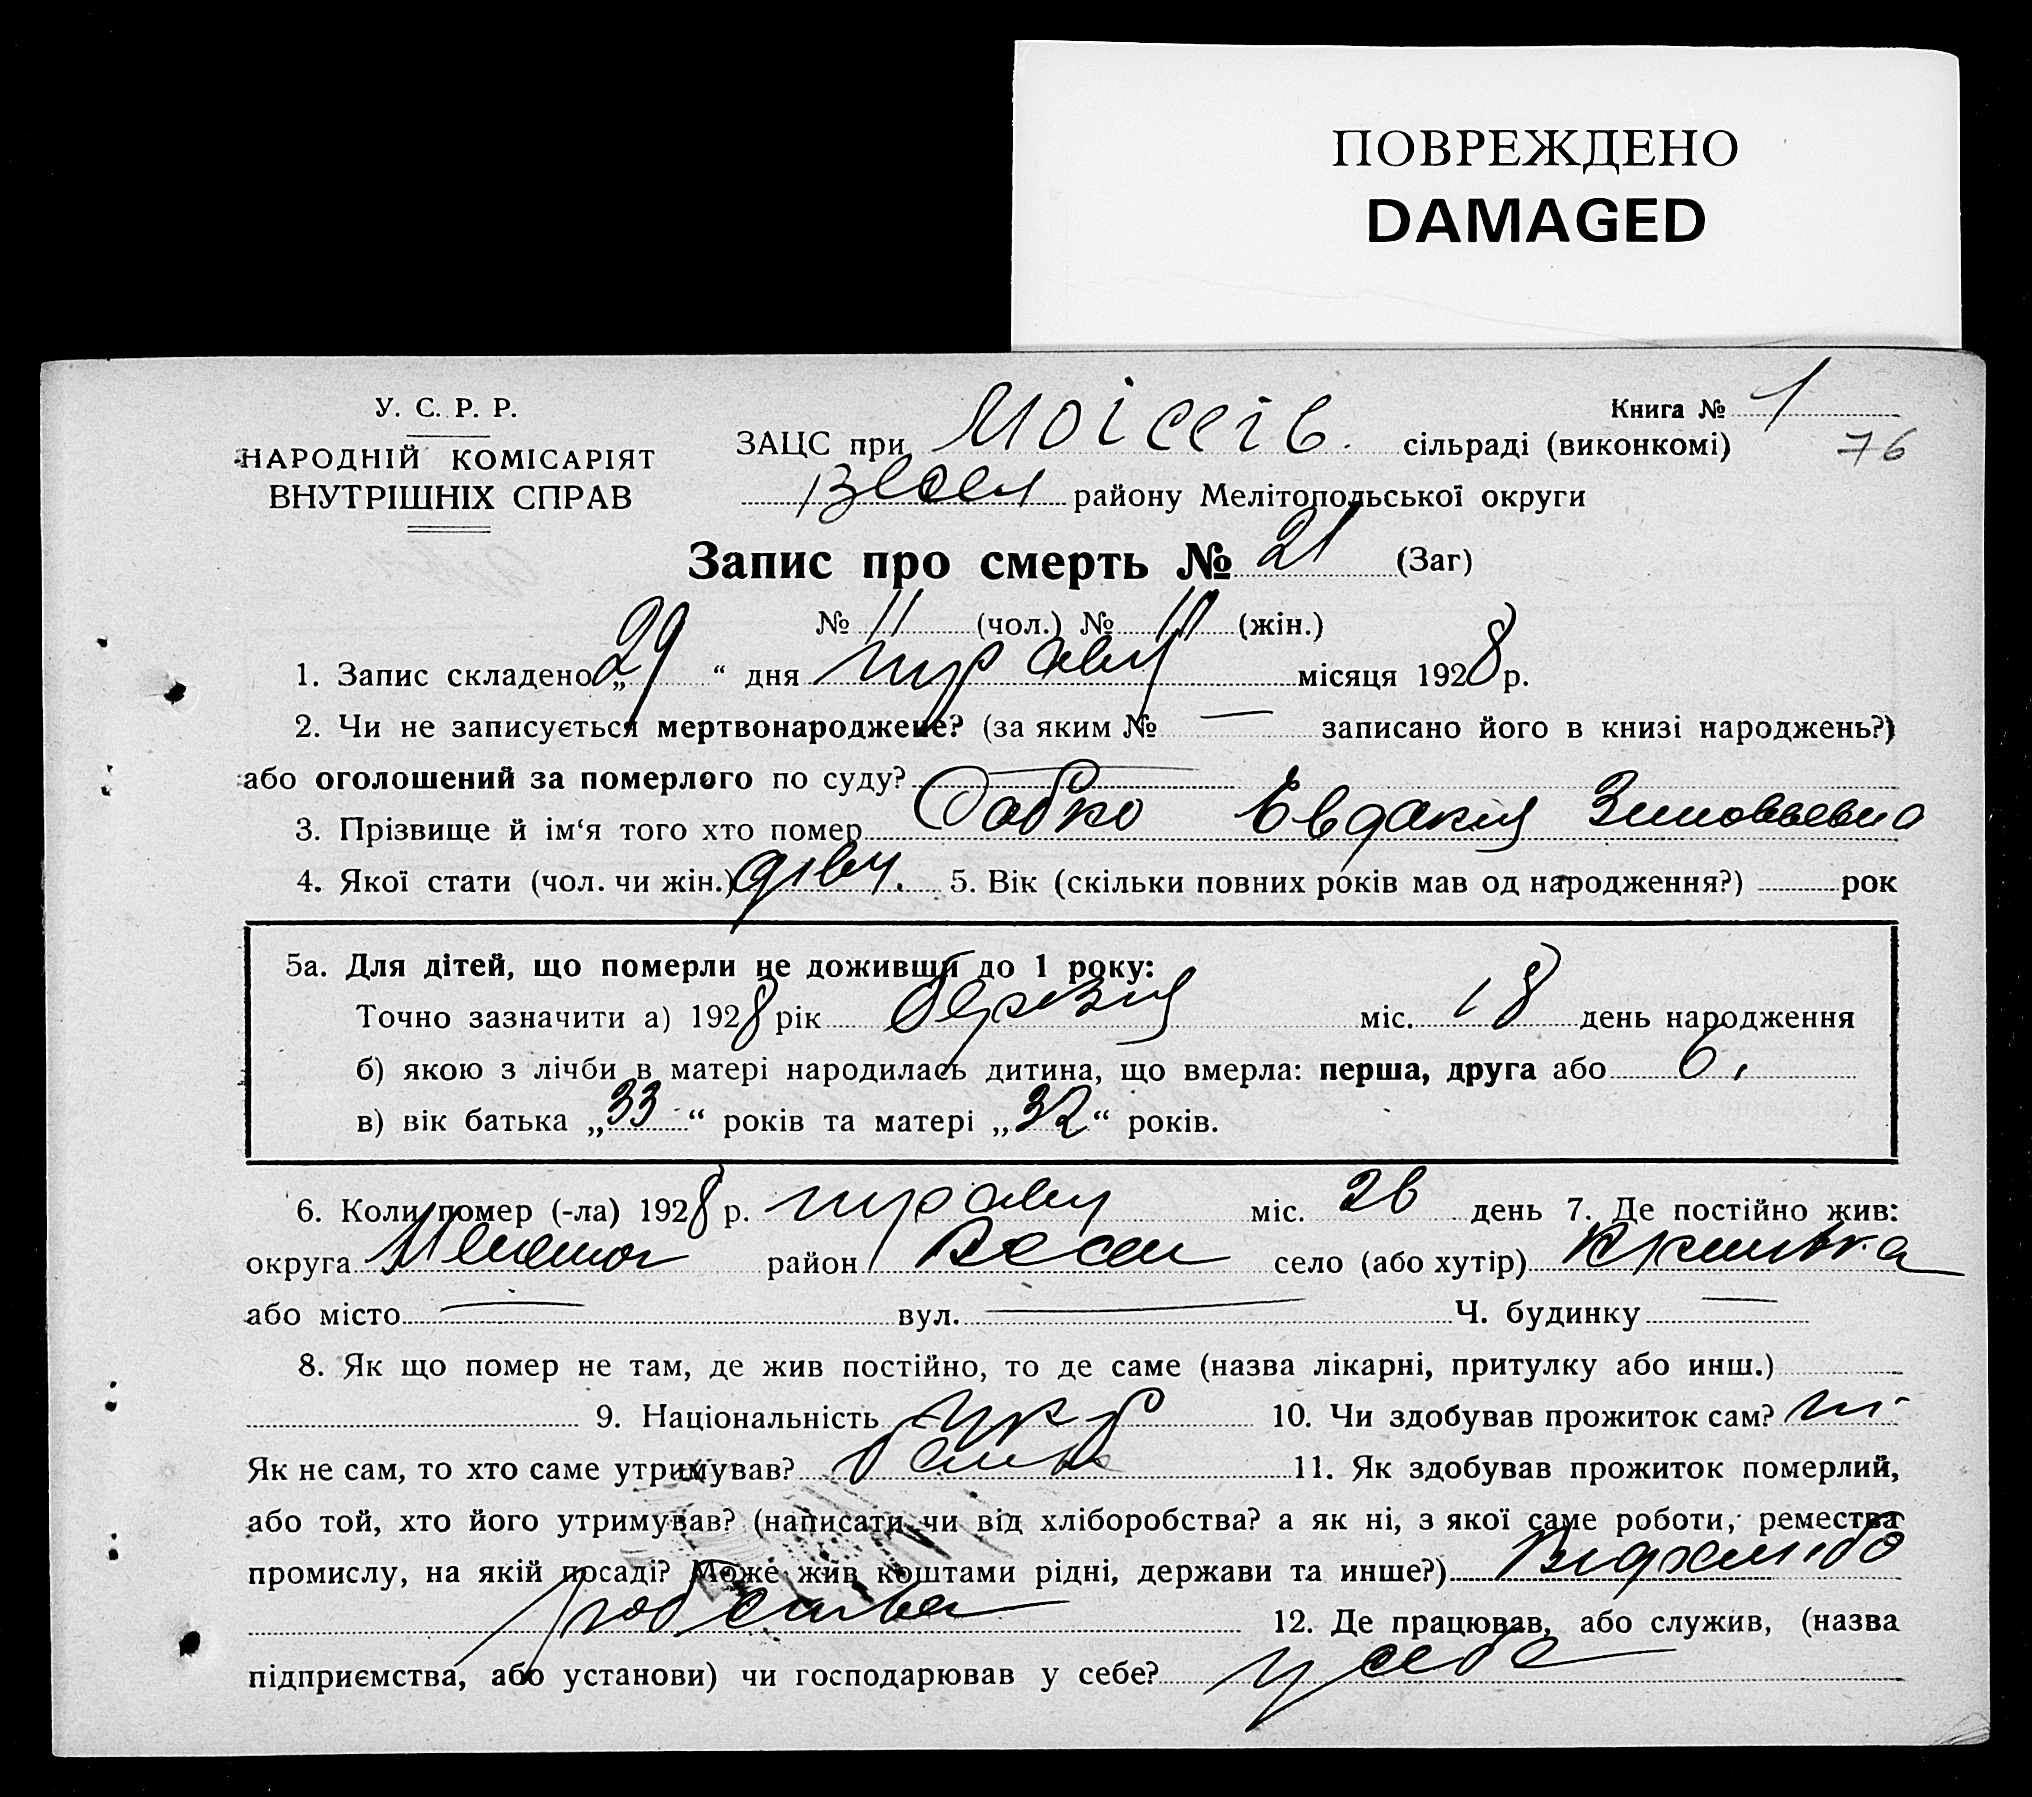 ПОВРЕЖДЕНО
DAMAGED
У. С. Р. Р.
НАРОДНІЙ КОМІСАРІЯТ
ВНУТРІШНІХ СПРАВ
Книга № 1
76
ЗАЦС при Моісеїв. сільраді (виконкомі)
Весел району Мелітопольської округи
Запис про смерть № 21 (Заг)
№ 11 (чол.) № (жін.)
1. Запис складено „29“ дня травня місяця 1928 р.
2. Чи не записується мертвонароджене? (за яким № — записано його в книзі народжень?)
або оголошений за померлого по суду? —
3. Прізвище й ім‘я того хто помер Бабко Евдакия Зиновьевна
4. Якої стати (чол. чи жін.) дівч. 5. Вік (скільки повних років мав од народження?) рок
5а. Для дітей, що померли не доживши до 1 року:
Точно зазначити а) 1928 рік березня міс. 18 день народження
б) якою з лічби в матері народилась дитина, що вмерла: перша, друга або 6.
в) вік батька „33“ років та матері „32“ років.
6. Коли помер (-ла) 1928 р. травня міс. 26 день 7. Де постійно жив:
округа Мелітоп район Весел село (або хутір)
або місто — вул. — Ч. будинку —
8. Як що помер не там, де жив постійно, то де саме (назва лікарні, притулку або инш.)
9. Національність укр 10. Чи здобував прожиток сам? ні
Як не сам, то хто саме утримував? батько 11. Як здобував прожиток померлий,
або той, хто його утримував? (написати чи від хліборобства? а як ні, з якої саме роботи, ремества
промислу, на якій посаді? Може жив коштами рідні, держави та инше?) Від хлібо
робства 12. Де працював, або служив, (назва
підприємства, або установи) чи господарював у себе? у себе